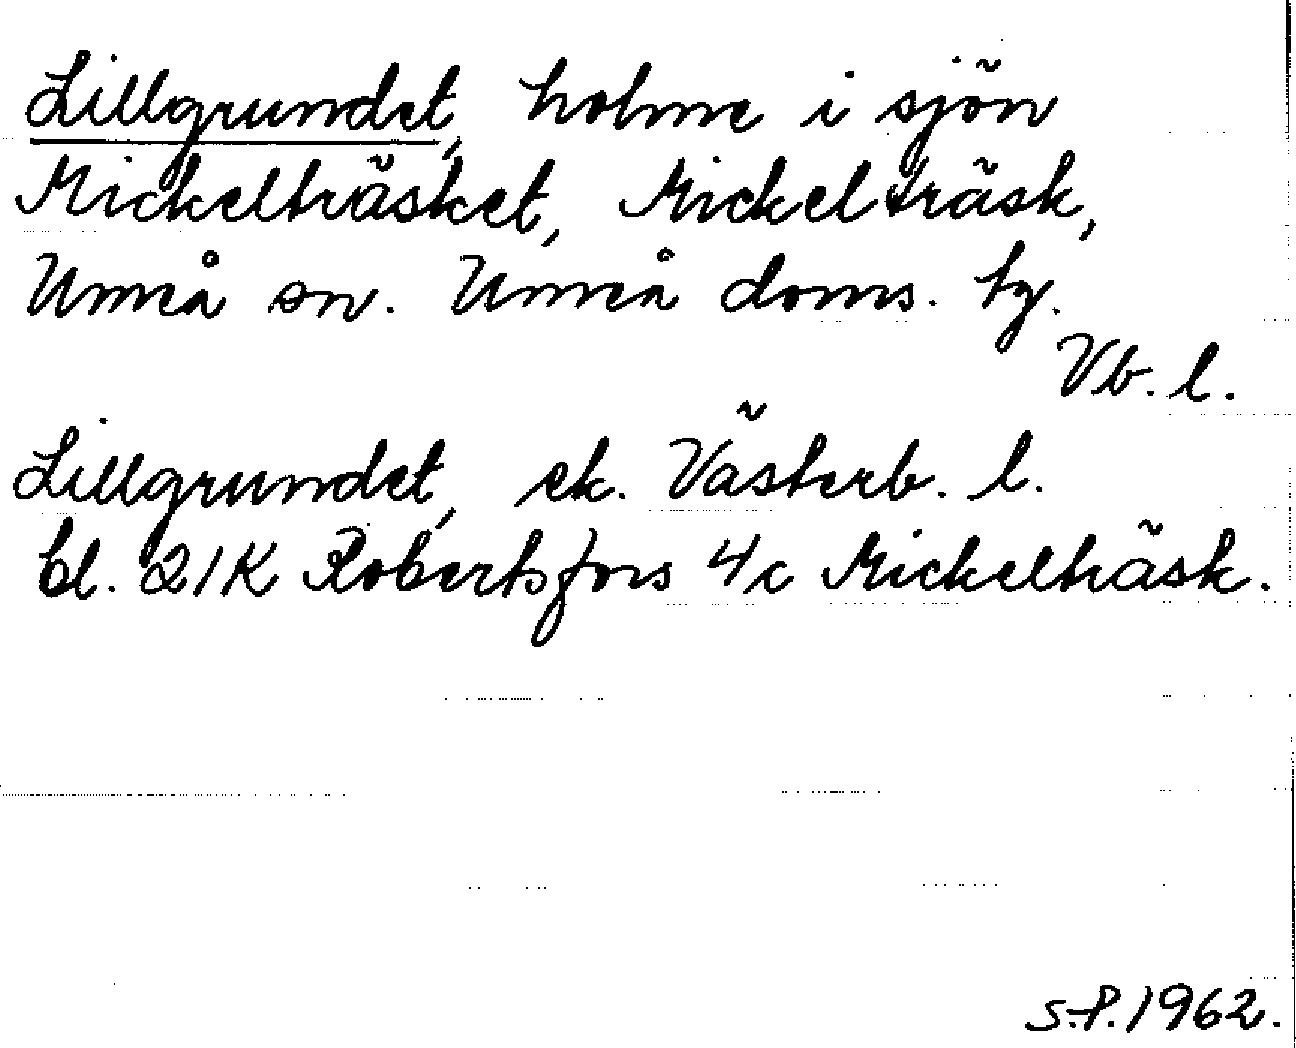 Lillgrundet, holme i sjön
Mickelträsket, Mickelträsk,
Umeå sn. Umeå doms. tg.
Vb. l.
Lillgrundet, ek. Västerb. l.
bl. 21K Robertsfors 4c Mickelträsk.
S.P. 1962.